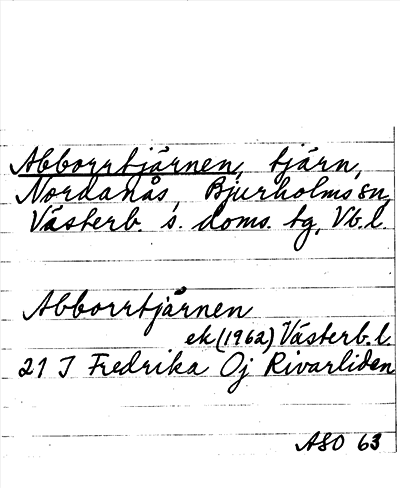 Abborrtjärnen, tjärn,
Nordanås, Bjurholms sn,
Västerb. s. doms. tg, Vb. l.
Abborrtjärnen
ek (1962) Västerb. l
21 J Fredrika Oj Rivarliden
ASO 63